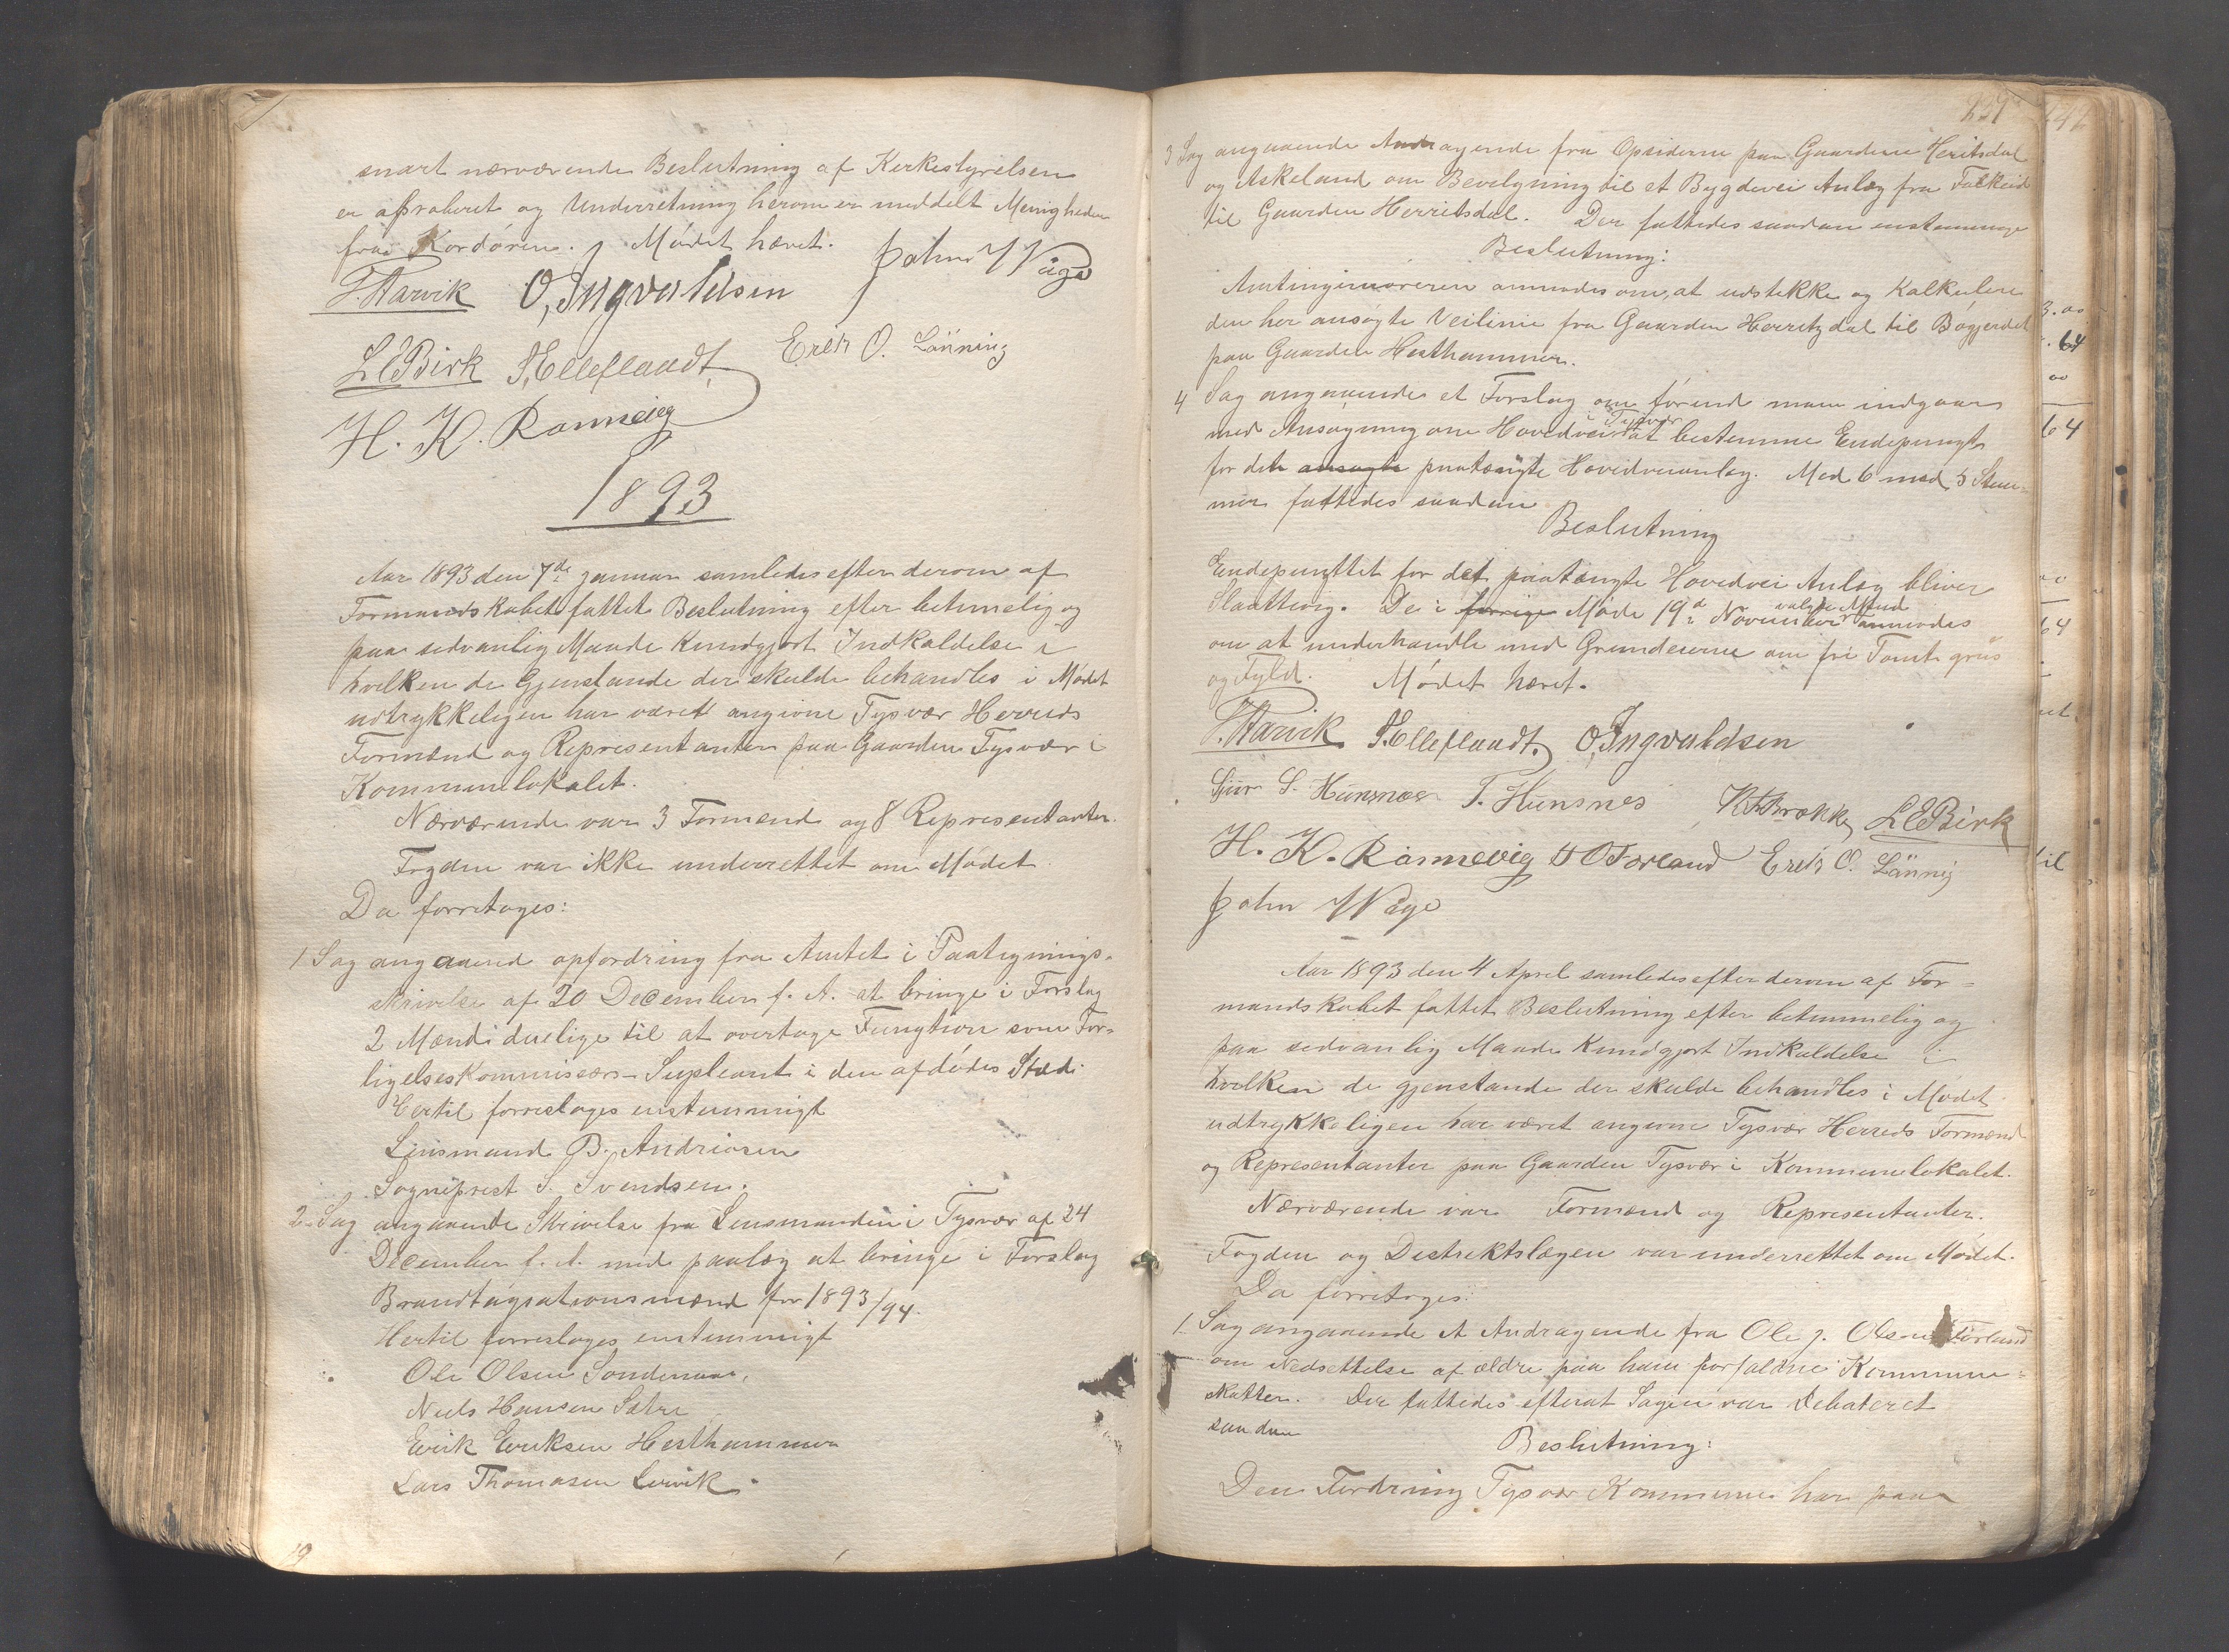 snart nærværende Beslutning af Kirkestyrelsen
er afproberet og Underretning herom er meddelt Menigheden
fra Kordøren. Mødet hævet. John Våge
T. Harvik O, Ingvaldsen
L E Birk S. Elleflaadt Erik O. Länning
H. K. Ramnevig
1893
Aar 1893 den 7de Januar samledes efter derom af
Formandskabet fattet Beslutning efter betimelig og
paa sedvanlig Maade Kundgjort Indkaldelse i
hvilken de Gjenstande der skulde behandles i Mødet
udtrykkeligen har været angivne Tysvær Herreds
Formænd og Representanter paa Gaarden Tysvær i
Kommunelokalet.
Nærværende var 3 Formænd og 8 Representanter.
Fogden var ikke underrettet om Mødet
Da forretoges:
1 Sag angaaend opfordring fra Amtet i Paategnings-
skrivelse af 20 December f. A. at bringe i Forslag
2 Mænd duelige til at overtage Fungtion som For-
ligelsesKommisærs-Supleant i den afdødes Sted.
Hertil foreslages enstemmigt
Linsmand B. Andriasen
Sogneprest S. Svendsen.
2 Sag angaaende Skrivelse fra Lensmanden i Tysvær af 24
December f. A. med paalæg at bringe i Forslag
Brandtagsationsmænd for 1893/94.
Hertil foreslages enstemmigt
Ole Olsen Søndenaa,
Niels Hansen Sætre
Eirik Eriksen Hesthammer
Lars Thomasen Lervik.
19
239
3 Sag angaaende Andragende fra Opsiderne paa Gaardene Heritsdal
og Askeland om Bevilgning til et Bygdevei Anlæg fra Falkeid
til Gaarden Herritsdal. Der fattedes saadan enstemmige
Beslutning:
Amtingeniøreren anmodes om, at udstikke og Kalkulere
den her ansøgte Veilinie fra Gaarden Herritzdal til Bøgjerdet
paa Gaarden Hesthammer.
4 Sag angaaende et Forslag om førend man indgaar
med Ansøgning om Hovedvei i Tysvær at bestemme Endepungt
for det ansøgte paatængte Hovedveianlæg. Med 6 mod 5 Stem-
mer fattedes saadan
Beslutning
Endepungtet for det paatængte Hovedvei Anlæg bliver
Slaattevig. De i forrige Møde 19d November valgte Mænd anmodes
om at underhandle med Grundeierne om fri Tomt grus
og Fyld. Mødet hævet.
T. Harvik S. Elleflaadt. O, Ingvaldsen
Sjur S. Hunsnæs T. Hunsnes K Brække L E Birk
H. K. Ramnevig O Førland Erik O. Länning
John Våge
Aar 1893 den 4 April samledes efter derom af For-
mandskabet fattet Beslutning efter betimmelig og
paa sedvanlig Maade Kundgjort Indkaldelse i
hvilken de gjenstande der skulde behandles i Mødet
udtrykkeligen har været angivne Tysvær Herreds Formænd
og Representanter paa Gaarden Tysvær i Kommunelokalet.
Nærværende var Formænd og Representanter.
Fogden og Distriktslægen var underrettet om Mødet.
Da forretoges:
1 Sag angaaende et Andragende fra Ole J. Olsen Førland
om Nedsettelse af ældre paa ham forfaldne Kommune-
skatter. Der fattedes efterat Sagen var Debateret
saadan
Beslutning:
Den Fordring Tysvær Kommune har paa
3.00
64
00
64
64
til